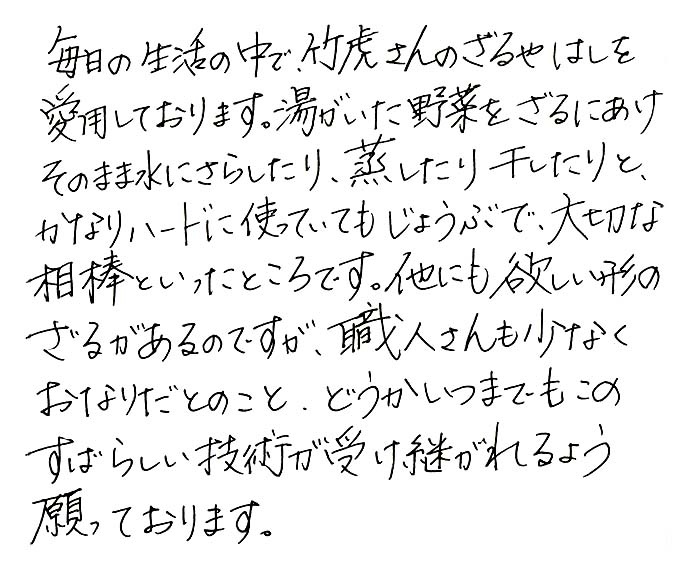 毎日の生活の中で、竹虎さんのざるやはしを
愛用しております。湯がいた野菜をざるにあけ
そのまま水にさらしたり、蒸したり干したりと、
かなりハードに使っていてもじょうぶで、大切な
相棒といったところです。他にも欲しい形の
ざるがあるのですが、職人さんも少なく
おなりだとのこと．どうかいつまでもこの
すばらしい技術が受け継がれるよう
願っております。